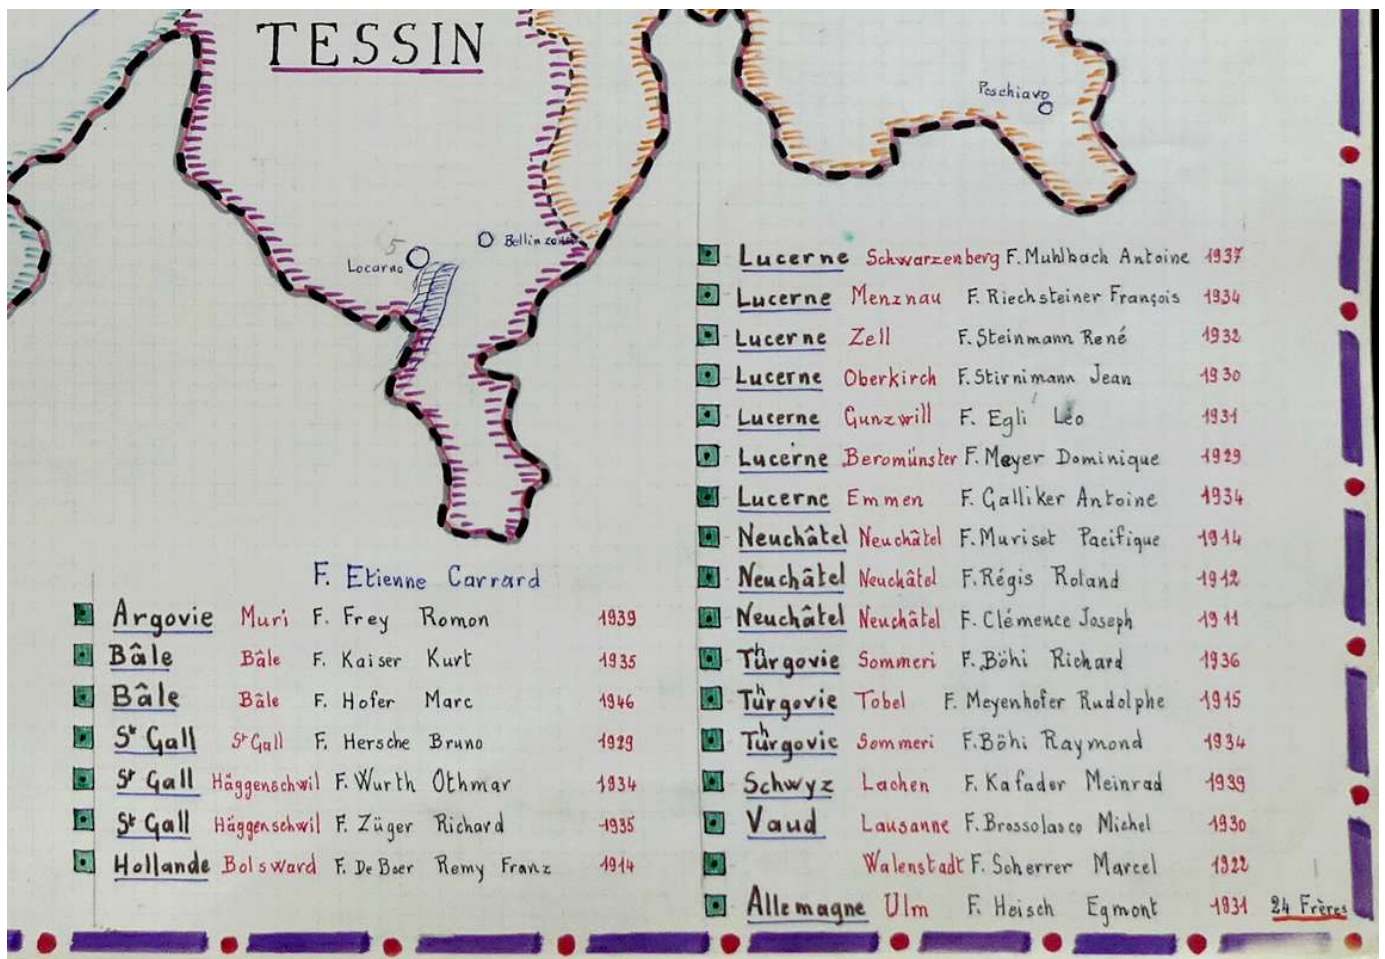 TESSIN
Poschiavo
5
Bellinzona
Locarno
F. Etienne Carrard
Argovie Muri F. Frey Romon 1939
Bâle Bâle F. Kaiser Kurt 1935
Bâle Bâle F. Hofer Marc 1946
St Gall St Gall F. Hersche Bruno 1929
St Gall Häggenschwil F. Wurth Othmar 1934
St Gall Häggenschwil F. Züger Richard 1935
Hollande Bolsward F. De Boer Remy Franz 1914
Lucerne Schwarzenberg F. Muhlbach Antoine 1937
Lucerne Menznau F. Riechsteiner François 1934
Lucerne Zell F. Steinmann René 1932
Lucerne Oberkirch F. Stirnimann Jean 1930
Lucerne Gunzwill F. Egli Léo 1931
Lucerne Beromünster F. Meyer Dominique 1929
Lucerne Emmen F. Galliker Antoine 1934
Neuchâtel Neuchâtel F. Muriset Pacifique 1914
Neuchâtel Neuchâtel F. Régis Roland 1912
Neuchâtel Neuchâtel F. Clémence Joseph 1911
Thürgovie Sommeri F. Böhi Richard 1936
Thürgovie Tobel F. Meyenhofer Rudolphe 1915
Thürgovie Sommeri F. Böhi Raymond 1934
Schwyz Lachen F. Kafader Meinrad 1939
Vaud Lausanne F. Brossolasco Michel 1930
Walenstadt F. Scherrer Marcel 1922
Allemagne Ulm F. Heisch Egmont 1931 24 Frères